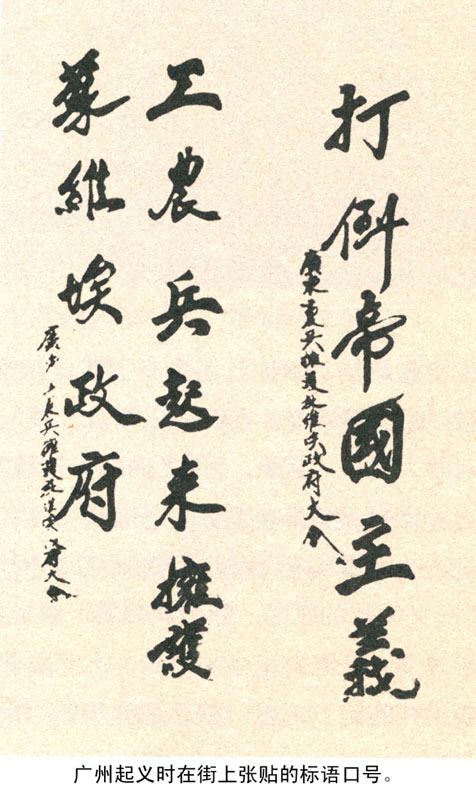 打倒帝國主義
廣東工農兵擁護蘇維埃政府大會
工農兵起来擁護
蘇維埃政府
廣東工農兵擁護蘇維埃府大會
广州起义时在街上张贴的标语口号。